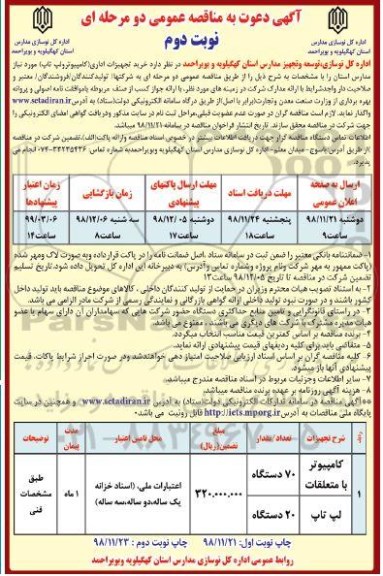 آگهی دعوت به مناقصه عمومی دو مرحله ای
نوبت دوم
اداره کل نوسازی مدارس
استان کهگیلویه و بویراحمد
اداره کل نوسازی مدارس
استان کهگیلویه و بویراحمد
اداره کل نوسازی،توسعه وتجهیز مدارس استان کهگیلویه و بویراحمد در نظر دارد خرید تجهیزات اداری(کامپیوترولپ تاپ) مورد نیاز
مدارس استان را با مشخصات به شرح ذیل را از طریق مناقصه عمومی دو مرحله ای به شرکتها، تولیدکنندگان/فروشندگان/ معتبر و
صلاحیت دار واجدشرایط با ارائه مدارک شرکت در زمینه های مورد نظر، با ارائه جواز کسب از صنف مربوطه یاموافقت نامه اصولی و پروانه
بهره برداری از وزارت صنعت معدن وتجارت(برابر با اصل)از طریق درگاه سامانه الکترونیکی دولت(ستاد) به آدرس www.setadiran.ir
واگذار نماید. لازم است مناقصه گران در صورت عدم عضویت قبلی،مراحل ثبت نام در سایت مذکور ودریافت گواهی امضای الکترونیکی را
جهت شرکت در مناقصه محقق سازند. تاریخ انتشار فراخوان مناقصه در سامانه ۹۸/۱۱/۲۱ میباشد.
اطلاعات تماس دستگاه مناقصه گزار جهت دریافت اطلاعات بیشتر در خصوص اسناد مناقصه وارائه پاکت(الف)،تضمین شرکت در مناقصه
از طریق آدرس:یاسوج- میدان معلم-اداره کل نوسازی مدارس استان کهگیلویه وبویراحمد-به شماره تماس ۳۳۲۲۵۹۲۶-۰۷۴ انجام می
پذیرد.
ارسال به صفحه اعلان عمومی | مهلت دریافت اسناد | مهلت ارسال پاکتهای پیشنهادی | زمان بازگشایی | زمان اعتبار پیشنهادها
دوشنبه ۹۸/۱۱/۲۱ | پنجشنبه ۹۸/۱۱/۲۴ | دوشنبه ۹۸/۱۲/۰۵ | سه شنبه ۹۸/۱۲/۰۶ | ۹۹/۰۳/۰۶
ساعت۹ | ساعت۱۸ | ساعت۱۷ | ساعت۸ | ساعت۱۴
۱- ضمانتنامه بانکی معتبر را ضمن ثبت در سامانه ستاد ،اصل ضمانت نامه را در پاکت قرارداده وبه صورت لاک ومهر شده
(پاکت ممهور به مهر شرکت ونام پروژه وشماره تماس وآدرس) به دبیرخانه این اداره کل تحویل داده شود.تاریخ تسلیم
تضمین شرکت در مناقصه تا تاریخ ۹۸/۱۲/۰۵ ساعت۱۲
۲- به استناد تصویب هیات محترم وزیران در حمایت از تولید کنندگان داخلی، کالاهای موضوع مناقصه باید تولید داخل
کشور باشند و در صورت نبود تولید داخلی ارائه گواهی بازرگانی و نمایندگی رسمی از شرکت مادر الزامی می باشد.
۳- در راستای قانونگرایی و تامین منابع حداکثری دستگاه حضور شرکت هایی که سهامداران آن دارای سهام یا عضو
هیات مدیره مشترک با شرکت های دیگری می باشند، ممنوع می باشد.
۴- برنده مناقصه بر اساس کمترین قیمت مناسب انتخاب میگردد.
۵- متقاضی باید برای کلیه ردیفهای قیمت پیشنهادی ارائه نماید.
۶- کلیه مناقصه گران بر اساس اسناد ارزیابی صلاحیت امتیاز دهی خواهندشد ودر صورت احراز شرایط پاکات، قیمت
پیشنهادی آنها باز میشود.
۷- سایر اطلاعات وجزئیات مربوط در اسناد مناقصه مندرج میباشد.
۸- هزینه آگهی روزنامه بر عهده برنده مناقصه میباشد.
**آگهی مناقصه در سامانه تدارکات الکترونیکی دولت(ستاد) به آدرس www.setadiran.ir و همچنین در سایت
پایگاه ملی مناقصات به آدرس http://iets.mporg.ir قابل رویت می باشد.
ردیف | شرح تجهیزات | تعداد/ مقدار | مبلغ تضمین(ریال) | محل تامین اعتبار | مدت پیمان | توضیحات
۱ | کامپیوتر با متعلقات | ۷۰ دستگاه | ۳۲۰.۰۰۰.۰۰۰ | اعتبارات ملی، (اسناد خزانه یک ساله،دو ساله،سه ساله) | ۱ ماه | طبق مشخصات فنی
لپ تاپ | ۲۰ دستگاه
چاپ نوبت اول: ۹۸/۱۱/۲۱ چاپ نوبت دوم : ۹۸/۱۱/۲۳
روابط عمومی اداره کل نوسازی مدارس استان کهگیلویه وبویراحمد